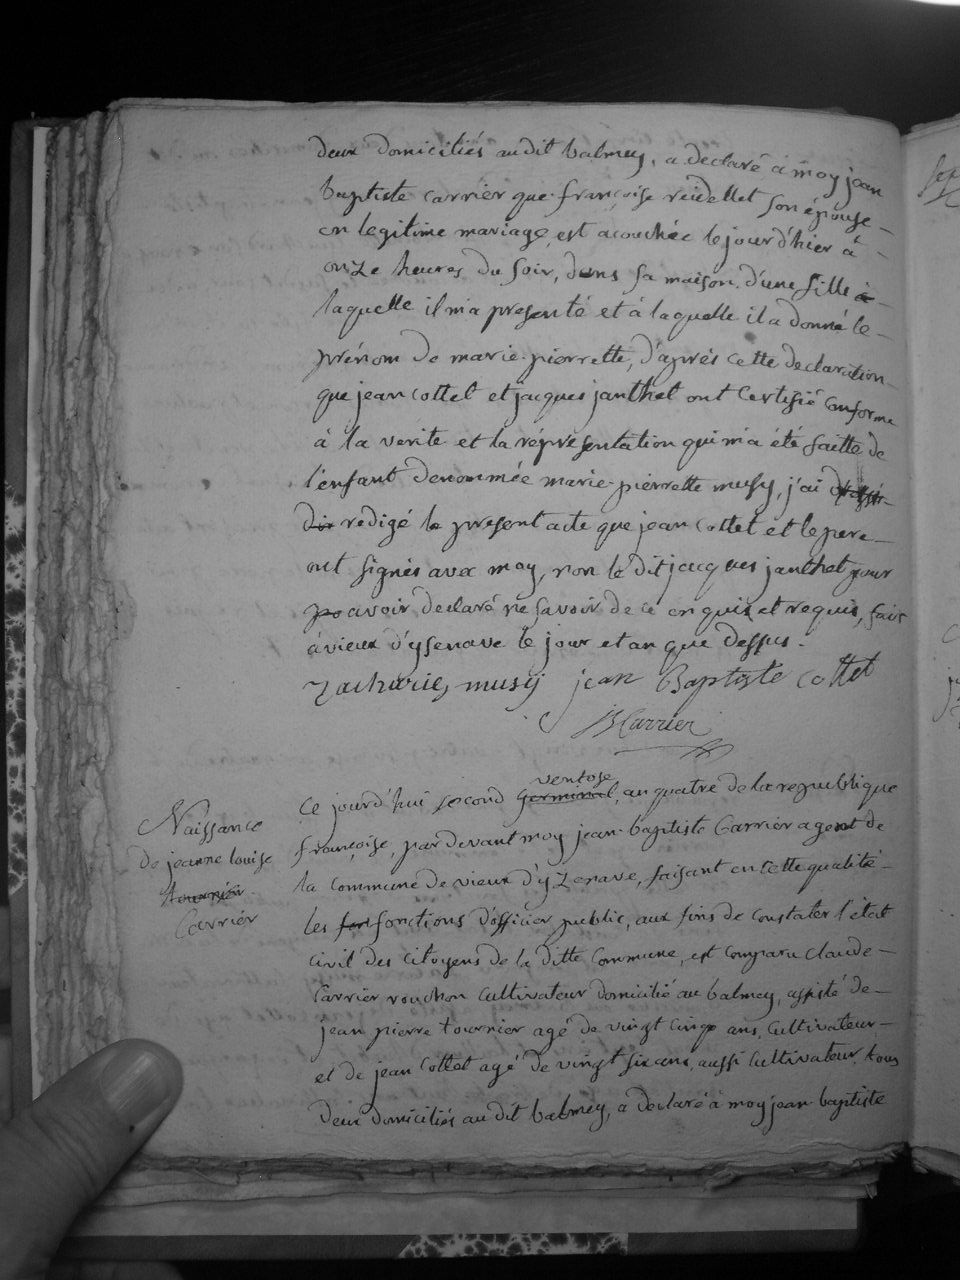 deux domiciliés audit balmey, a declaré à moy jean
baptiste carrier que françoise reidellet son épouse
en legitime mariage, est acouchée le jourd'hier à
onze heures du soir, dans sa maison, d'une fille à
laquelle il m'a presenté et à laquelle il a donné le
prénom de marie-pierrette, d'après cette declaration
que jean cottet et jacques janthet ont certifié conforme
à la verité et la répresentation qui m'a été faitte de
l'enfant denommée marie-pierrette musy, j'ai
redigé le present acte que jean cottet et le pere
ont signés avec moy, non le dit jacques janthet pour
po avoir declaré ne savoir de ce enquis et requis, fait
à vieux d'ysenave le jour et an que dessus.
Zacharie musy jean Baptiste cottet
JB Carrier
ventose
Ce jourd'hui second germinal, an quatre de la republique
Naissance
de jeanne louise
tournier
Carrier
françoise, pardevant moy jean-baptiste Carrier agent de
la commune de vieux d'yzenave, faisant en cette qualité
les fon fonctions d'officier public, aux fins de constater l'état
civil des citoyens de la ditte Commune, est comparu claude
Carrier rouchon cultivateur domicilié au balmey, assisté de
jean pierre tournier agé de vingt cinq ans, cultivateur
et de jean Cottet agé de vingt six ans, aussi cultivateur, tous
deux domiciliés au dit balmey, a declaré à moy jean-baptiste